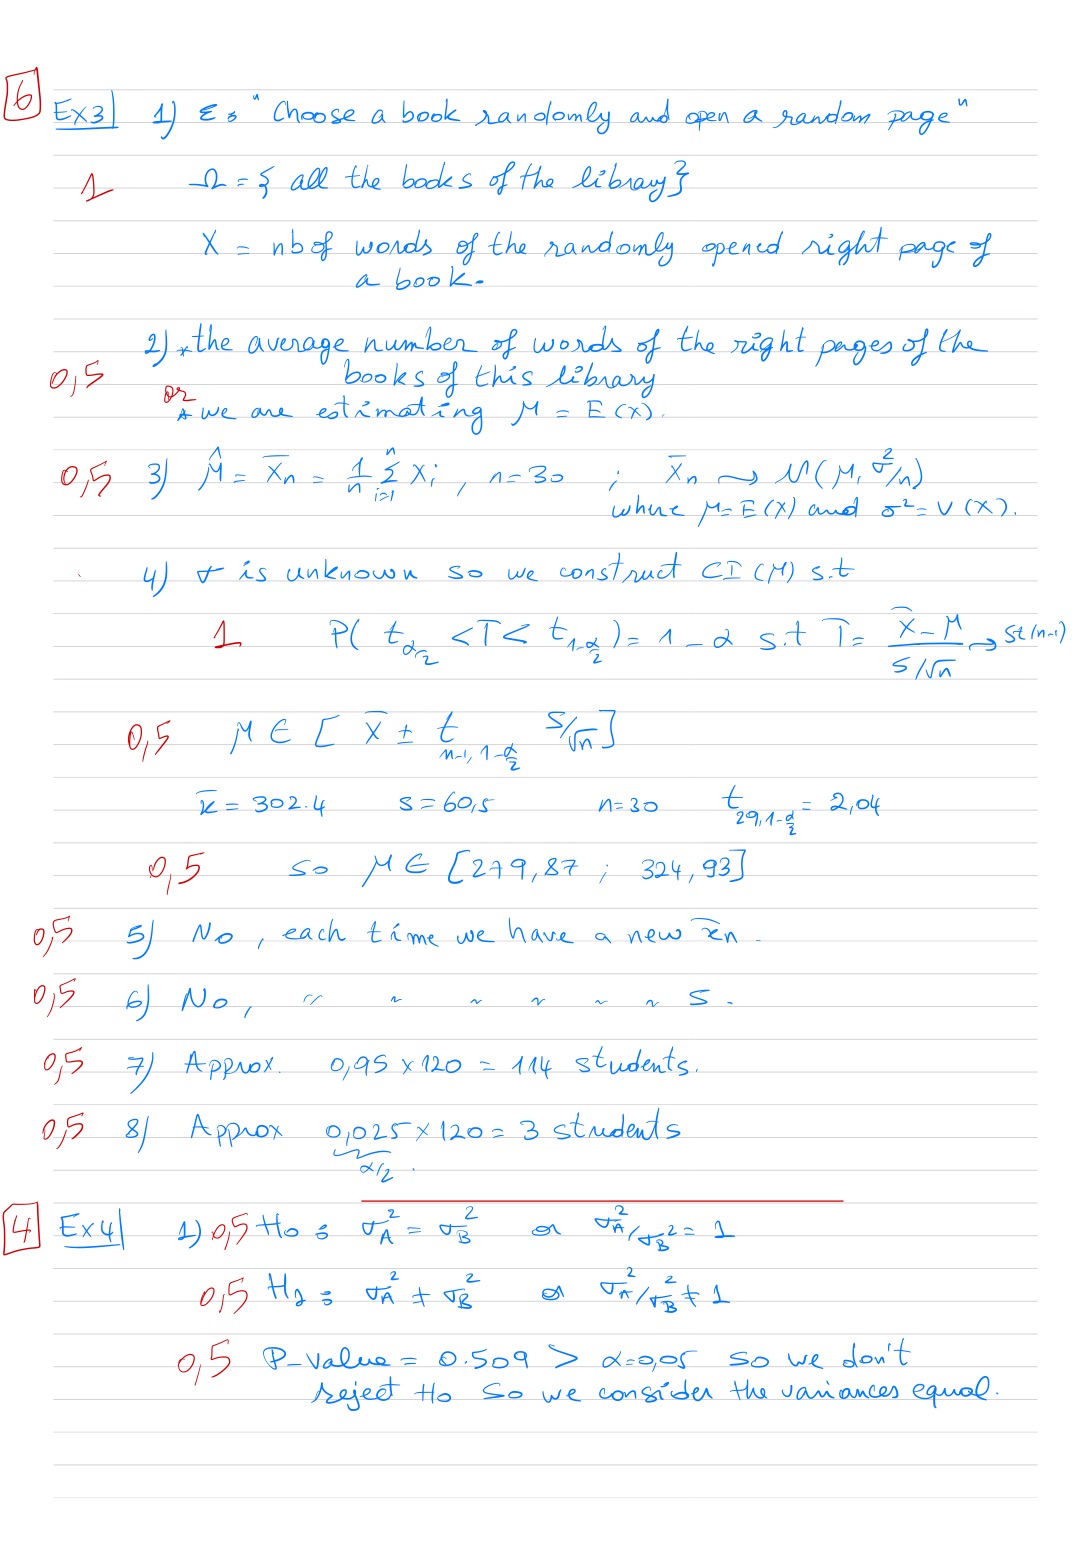 6 Ex3 1) ε : " Choose a book randomly and open a random page "
1 Ω = { all the books of the library }
X = nb of words of the randomly opened right page of
a book.
2) * the average number of words of the right pages of the
0,5 books of this library
or
* we are estimating μ = E(X).
0,5 3) μ̂ = X̄n = 1/n Σ_{i=1}^{n} Xi , n=30 ; X̄n ⇝ N(μ, σ²/n)
where μ = E(X) and σ² = V(X).
4) σ is unknown so we construct CI(μ) s.t
1 P( t_{α/2} < T < t_{1-α/2} ) = 1 - α s.t T = (X̄ - μ)/(S/√n) ⇝ St(n-1)
0,5 μ ∈ [ X̄ ± t_{n-1, 1-α/2} S/√n ]
x̄ = 302.4 s = 60,5 n=30 t_{29,1-α/2} = 2,04
0,5 so μ ∈ [279,87 ; 324,93]
0,5 5) No , each time we have a new x̄n .
0,5 6) No, " " " " " " s .
0,5 7) Approx. 0,95 × 120 = 114 students.
0,5 8) Approx 0,025 × 120 = 3 students
α/2 .
4 Ex4 1) 0,5 H0 : σ_A² = σ_B² or σ_A²/σ_B² = 1
0,5 H1 : σ_A² ≠ σ_B² or σ_A²/σ_B² ≠ 1
0,5 P-value = 0.509 > α=0,05 so we don't
reject H0 so we consider the variances equal.